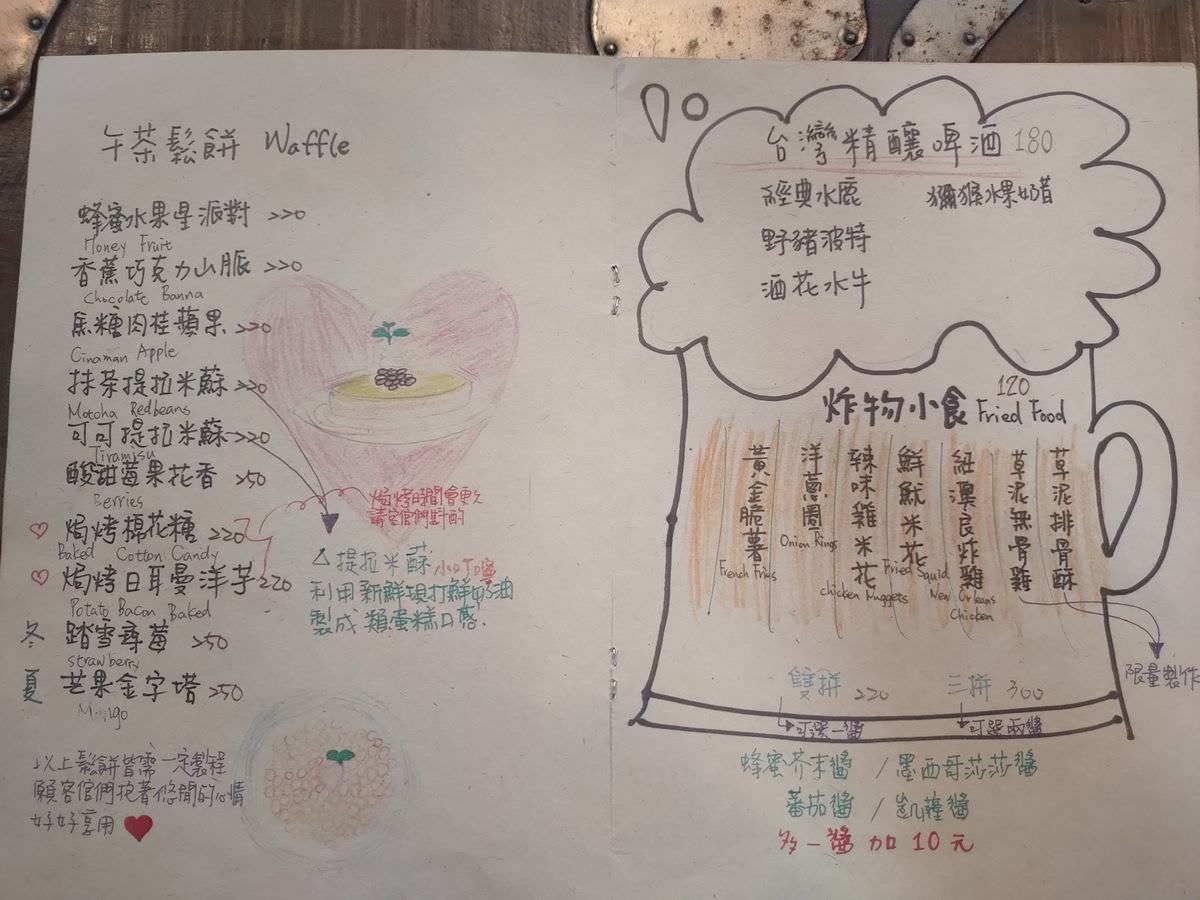 午茶鬆餅 Waffle
蜂蜜水果星派對 220
Honey Fruit
香蕉巧克力山脈 220
Chocolate Banna
焦糖肉桂蘋果 220
Cinaman Apple
抹茶提拉米蘇 220
Motcha Redbeans
可可提拉米蘇 220
Tiramisu
酸甜莓果花香 250
Berries
♡ 焗烤棉花糖 220
Baked Cotton Candy
♡ 焗烤日耳曼洋芋 220
Potato Bacon Baked
焗烤時間會更久
請客官們斟酌
冬 踏雪尋莓 250
strawberry
夏 芒果金字塔 250
Mango
△提拉米酥 小叮嚀
利用新鮮現打鮮奶油
製成類蛋糕口感.
以上鬆餅皆需一定製程
願客官們抱著悠閒的心情
好好享用 ♥
台灣精釀啤酒 180
經典水鹿 獼猴水果奶昔
野豬波特
酒花水牛
炸物小食 120 Fried Food
黃金脆薯
French Fries
洋蔥圈
Onion Rings
辣味雞米花
chicken Nuggets
鮮魷米花
Fried Squid
紐澳良炸雞
New Orleans
Chicken
草泥無骨雞
草泥排骨酥
限量製作
雙拼 220 三拼 300
可選一醬 可選兩醬
蜂蜜芥末醬 / 墨西哥莎莎醬
蕃茄醬 / 凱薩醬
多一醬 加 10 元